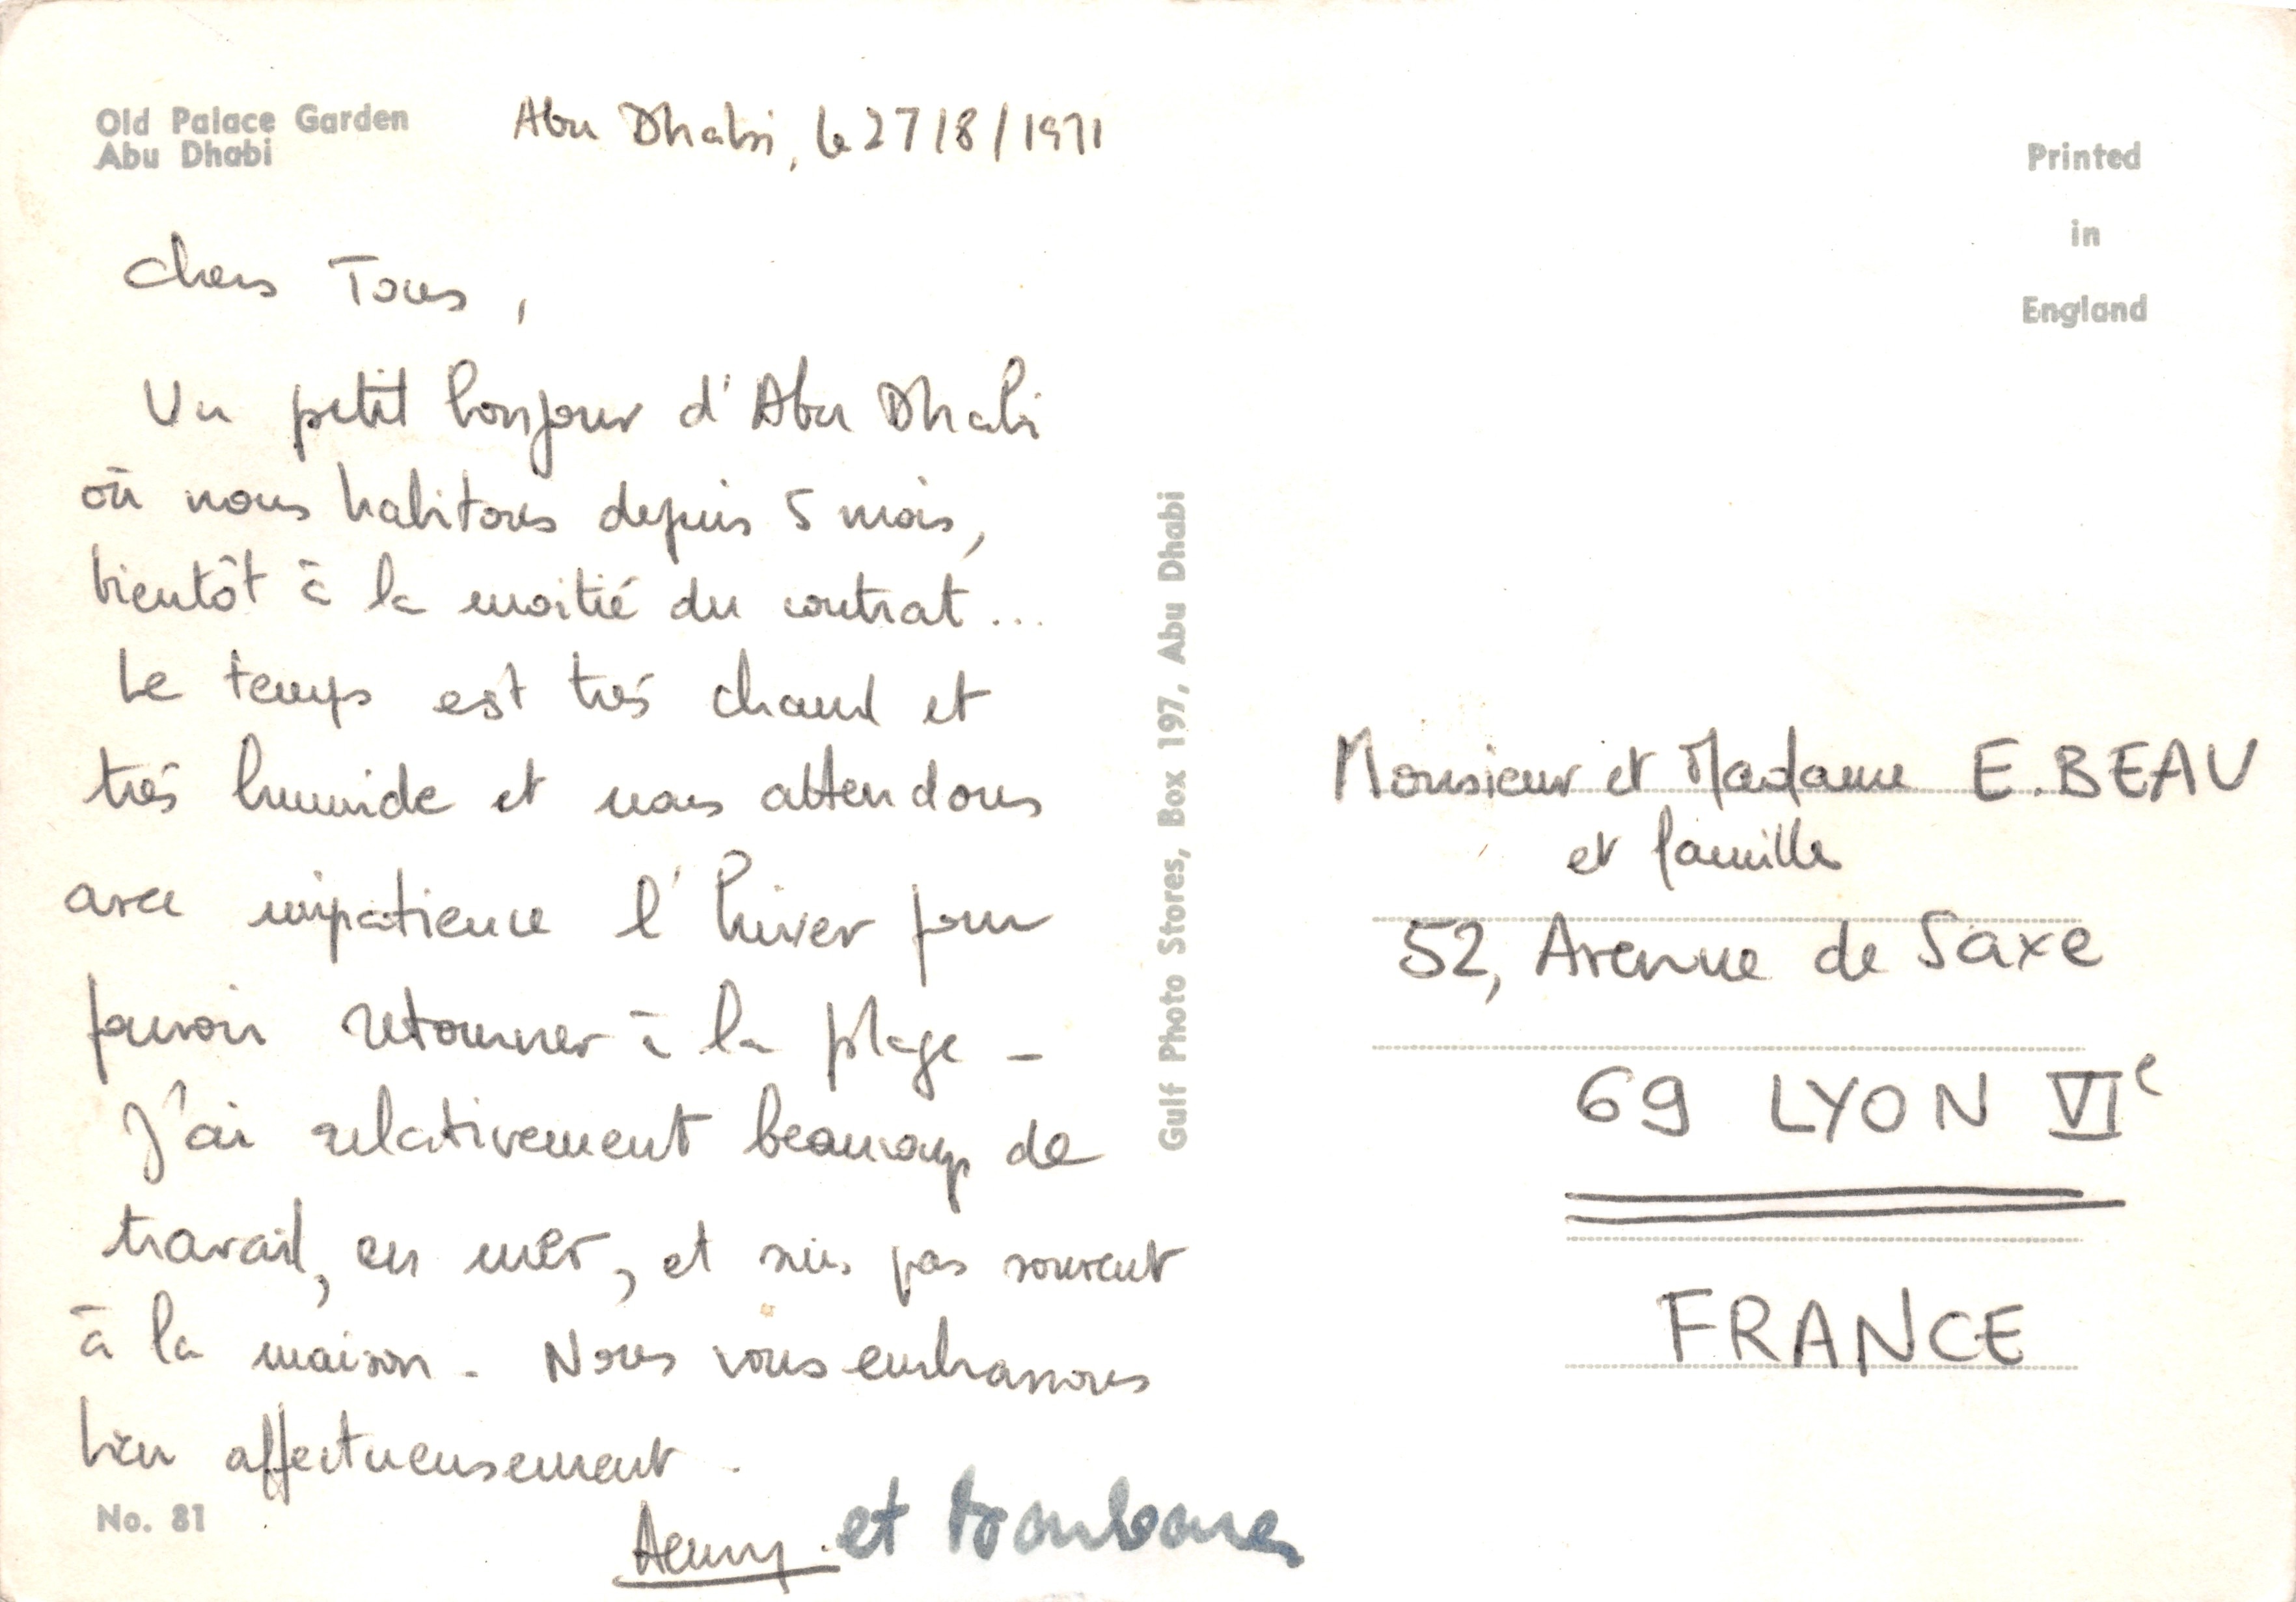 Old Palace Garden
Abu Dhabi
Abu Dhabi, le 27/8/1971
Chers Tous,
Un petit bonjour d'Abu Dhabi
où nous habitons depuis 5 mois,
bientôt à la moitié du contrat...
Le temps est très chaud et
très humide et nous attendons
avec impatience l'hiver pour
pouvoir retourner à la plage -
J'ai relativement beaucoup de
travail, en mer, et suis pas souvent
à la maison. Nous vous embrassons
bien affectueusement.
et
No. 81
Gulf Photo Stores, Box 197, Abu Dhabi
Printed
in
England
Monsieur et Madame E. BEAU
et famille
52, Avenue de Saxe
69 LYON VIe
FRANCE